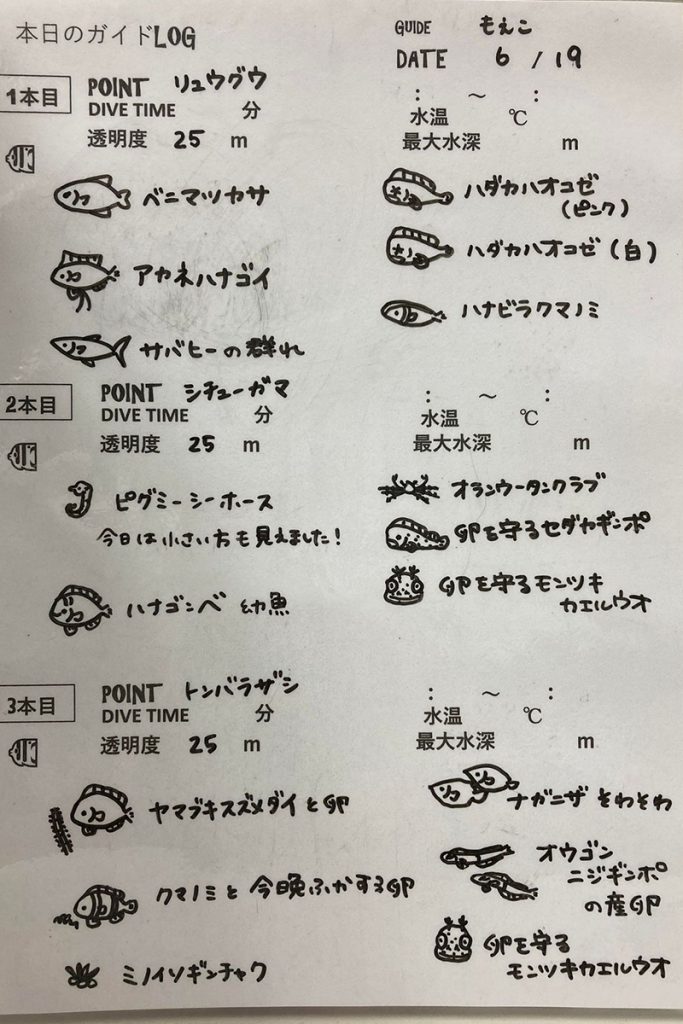 本日のガイドLOG
GUIDE もえこ
DATE 6 / 19
1本目
POINT リュウグウ
DIVE TIME 分
透明度 25 m
: ～ :
水温 ℃
最大水深 m
ベニマツカサ
アカネハナゴイ
サバヒーの群れ
ハダカハオコゼ
(ピンク)
ハダカハオコゼ(白)
ハナビラクマノミ
2本目
POINT シチューガマ
DIVE TIME 分
透明度 25 m
: ～ :
水温 ℃
最大水深 m
ピグミーシーホース
今日は小さい方も見えました!
ハナゴンベ 幼魚
オランウータンクラブ
卵を守るセダカギンポ
卵を守るモンツキ
カエルウオ
3本目
POINT トンバラザシ
DIVE TIME 分
透明度 25 m
: ～ :
水温 ℃
最大水深 m
ヤマブキスズメダイと卵
クマノミと今晩ふかする卵
ミノイソギンチャク
ナガニザ そわそわ
オウゴン
ニジギンポ
の産卵
卵を守る
モンツキカエルウオ